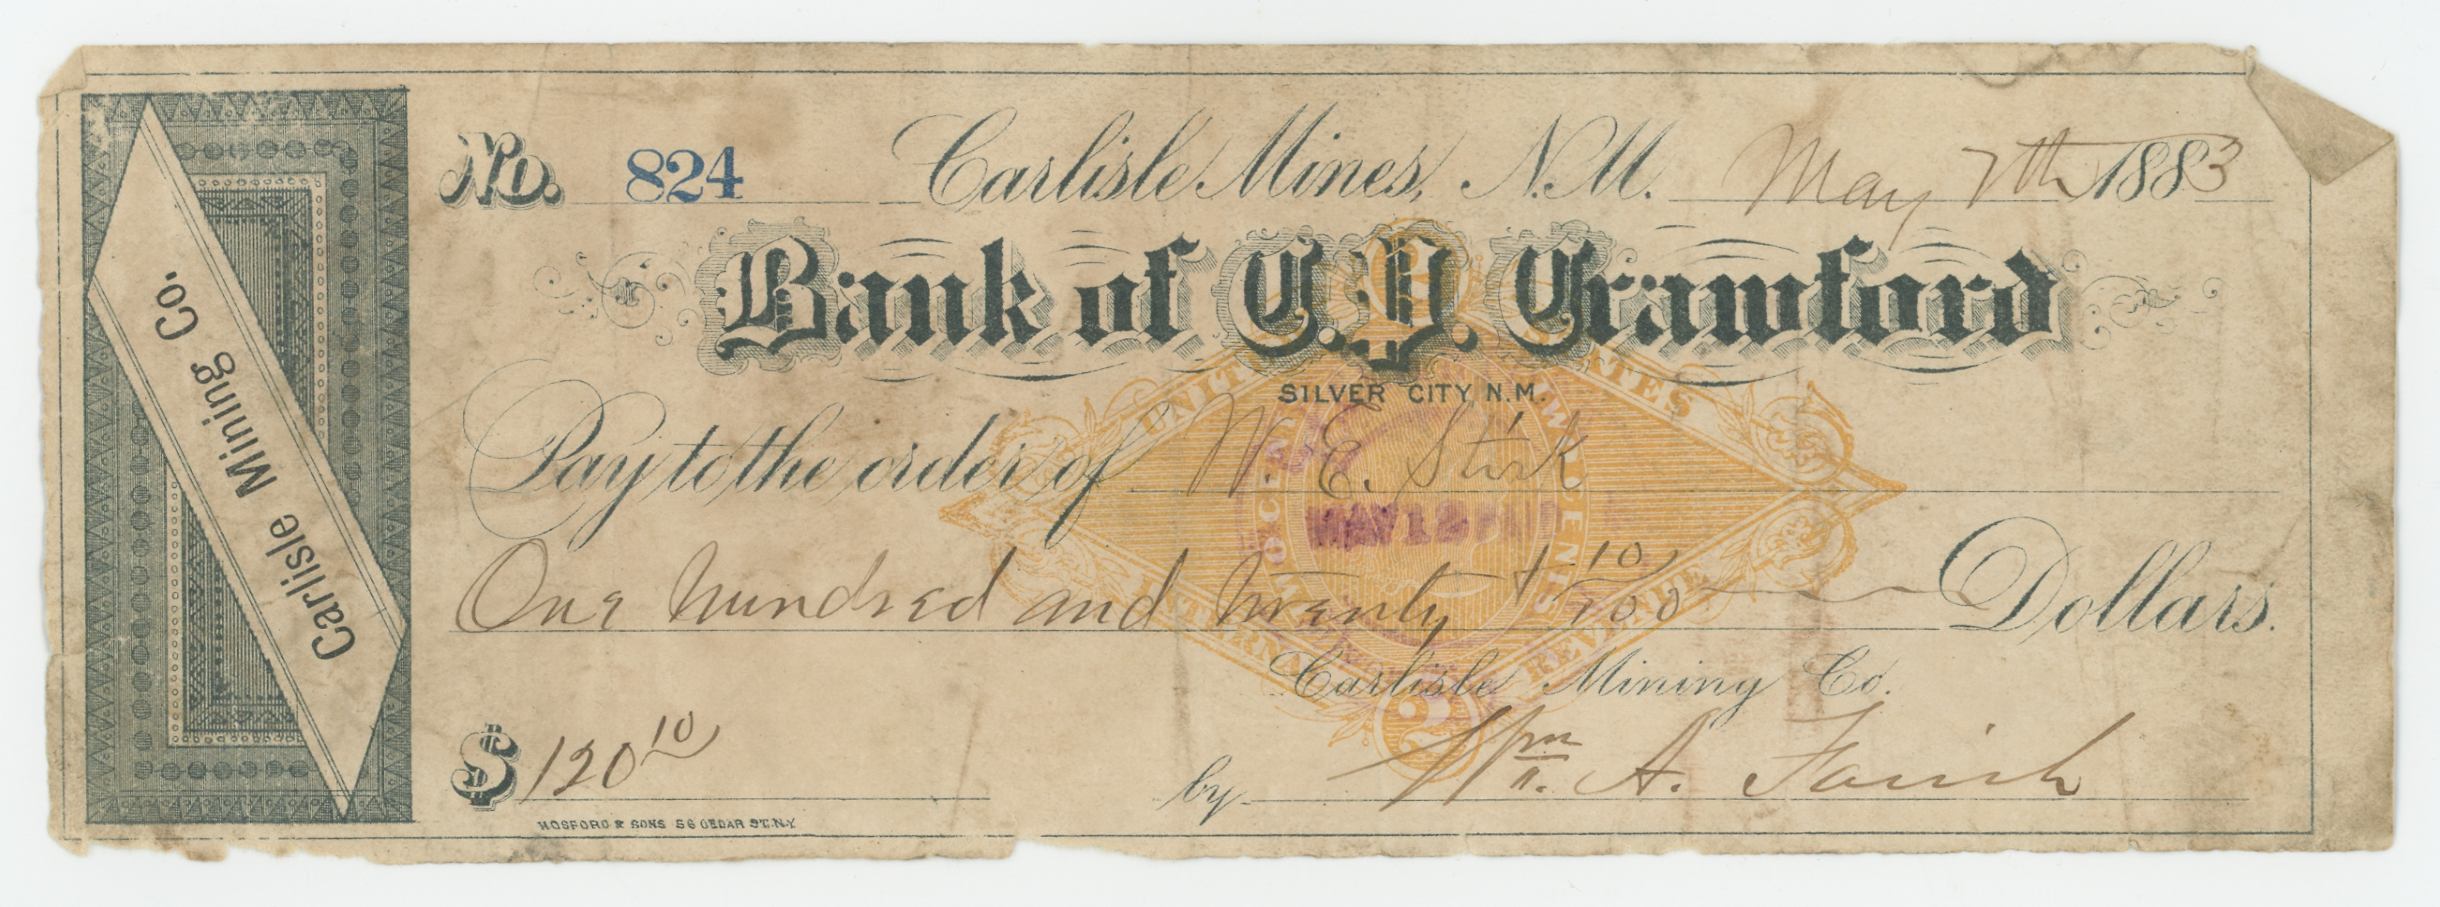 Carlisle Mining Co.
No. 824 Carlisle Mines, N.M. May 7th 1883
Bank of C.P. Crawford
SILVER CITY, N.M.
UNITED STATES
Pay to the order of W. E. Stirk
MAY 12
One hundred and twenty + 10/100 Dollars.
INTERNAL REVENUE
Carlisle Mining Co.
2
$ 120 10
by Wm. A. Farish
HOSFORD & SONS 56 CEDAR ST. N.Y.